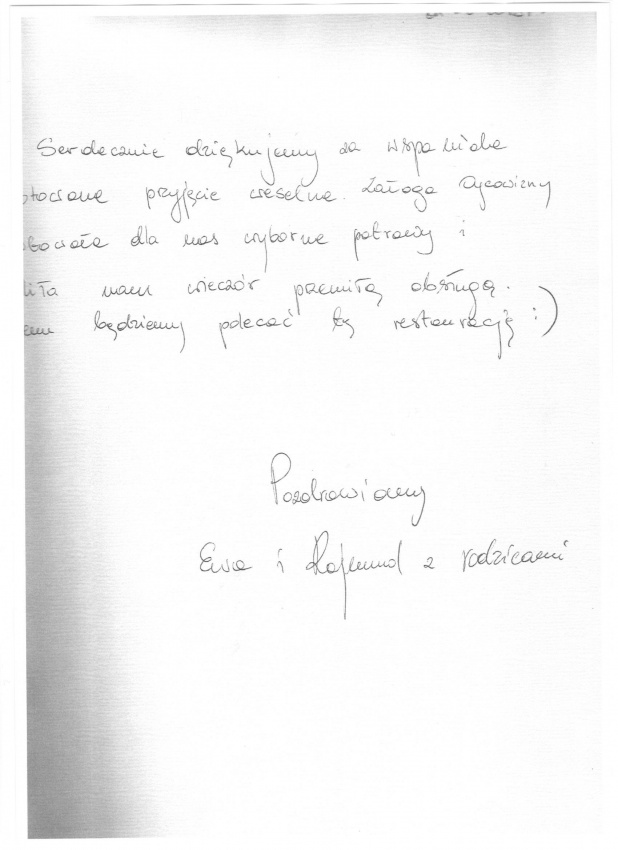 Serdecznie dziękujemy za wspaniale
otowane przyjęcie weselne. Załoga Ojcowizny
towała dla nas wyborne potrawy i
iła nam wieczór przemiłą obsługą.
em będziemy polecać tę restaurację :)
Pozdrawiamy
Ewa i Rajmund z rodzicami